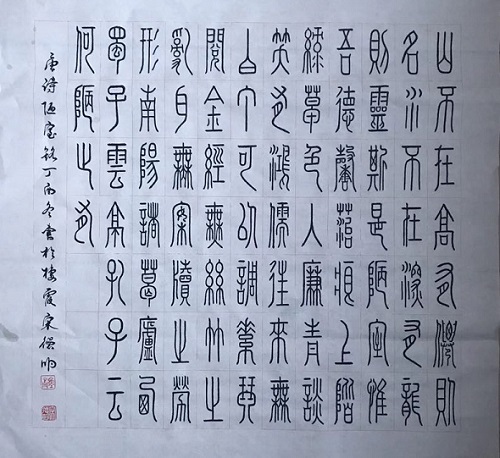 山不在高有僊則
名水不在深有龍
則靈斯是陋室惟
吾德馨苔痕上階
綠草色入簾青談
笑有鴻儒往來無
白丁可以調素琴
閱金經無絲竹之
亂耳無案牘之勞
形南陽諸葛廬西
蜀子雲亭孔子云
何陋之有
唐诗陋室铭丁酉冬書於棲霞宋